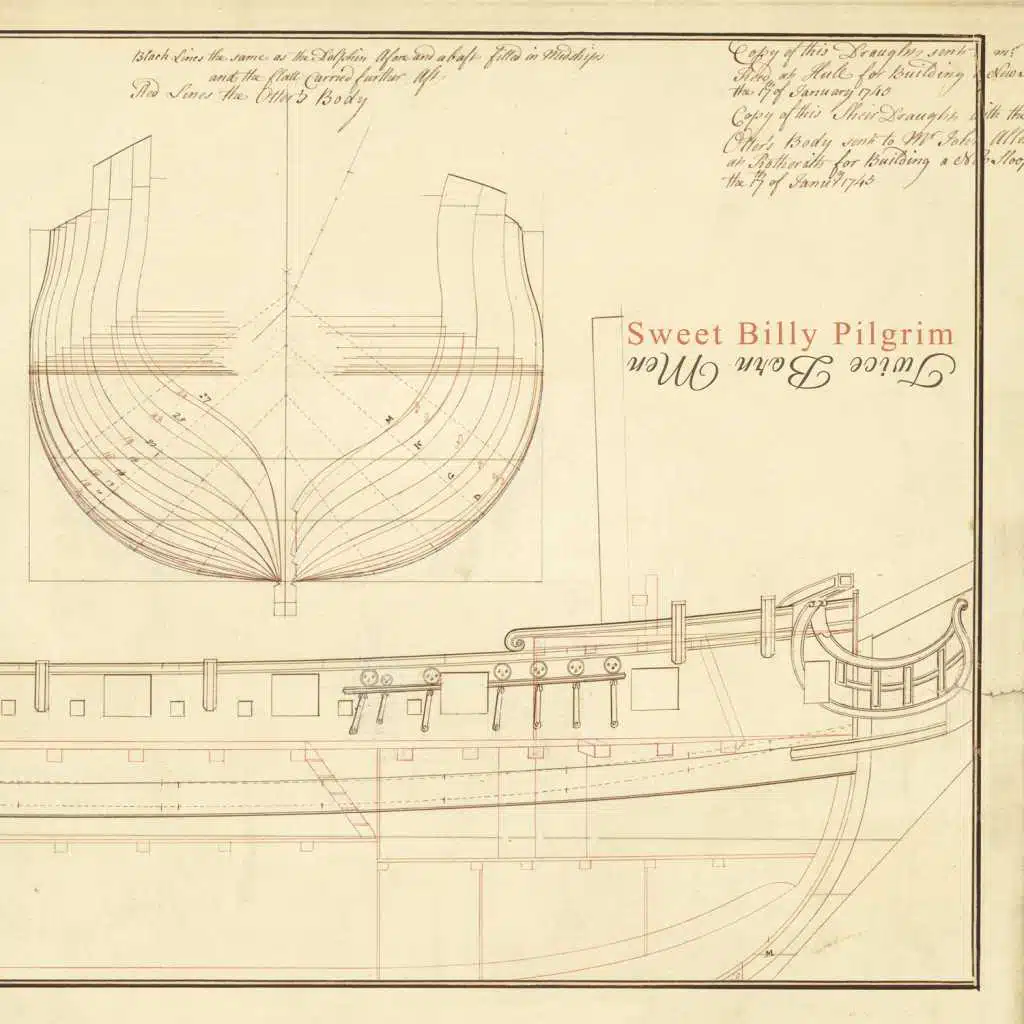 Black Lines the same as the Dolphin Afore and abaft filled in Midships
and the flatt Carried further Aft
Red Lines the Otter's Body
Copy of this Draught sent mr.
at Hull for Building a New
the 17 of January 1743
Copy of this Sheir Draught with the
Otter's Body sent to Mr John Alle
at Rotherith for Building a New Sloop
the 17th of Janury 1743
Sweet Billy Pilgrim
Twice Born Men
27
23
M
K
G
D
M